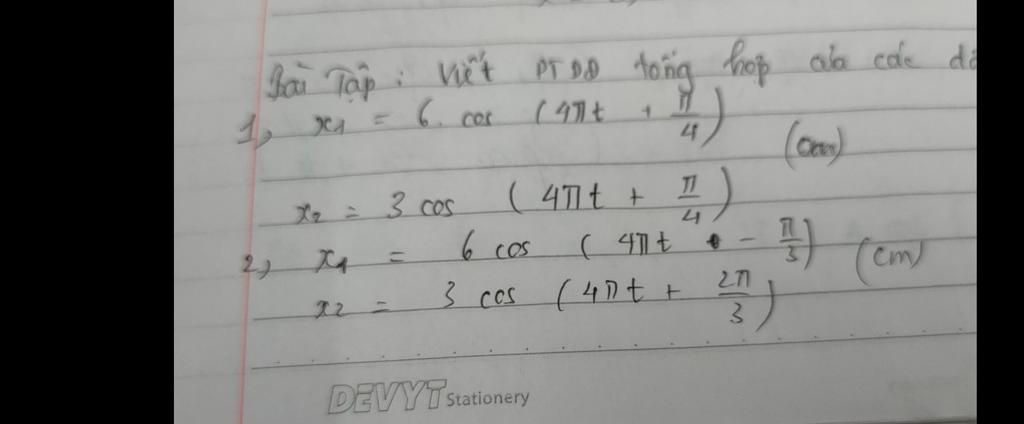 Bài Tập : Viết PT DĐ tổng hợp của các
1, x1 = 6. cos (4πt + π/4)
(cm)
x2 = 3 cos (4πt + π/4)
2, x1 = 6 cos (4πt - π/3)
(cm)
x2 = 3 cos (4πt + 2π/3)
DEVYT Stationery